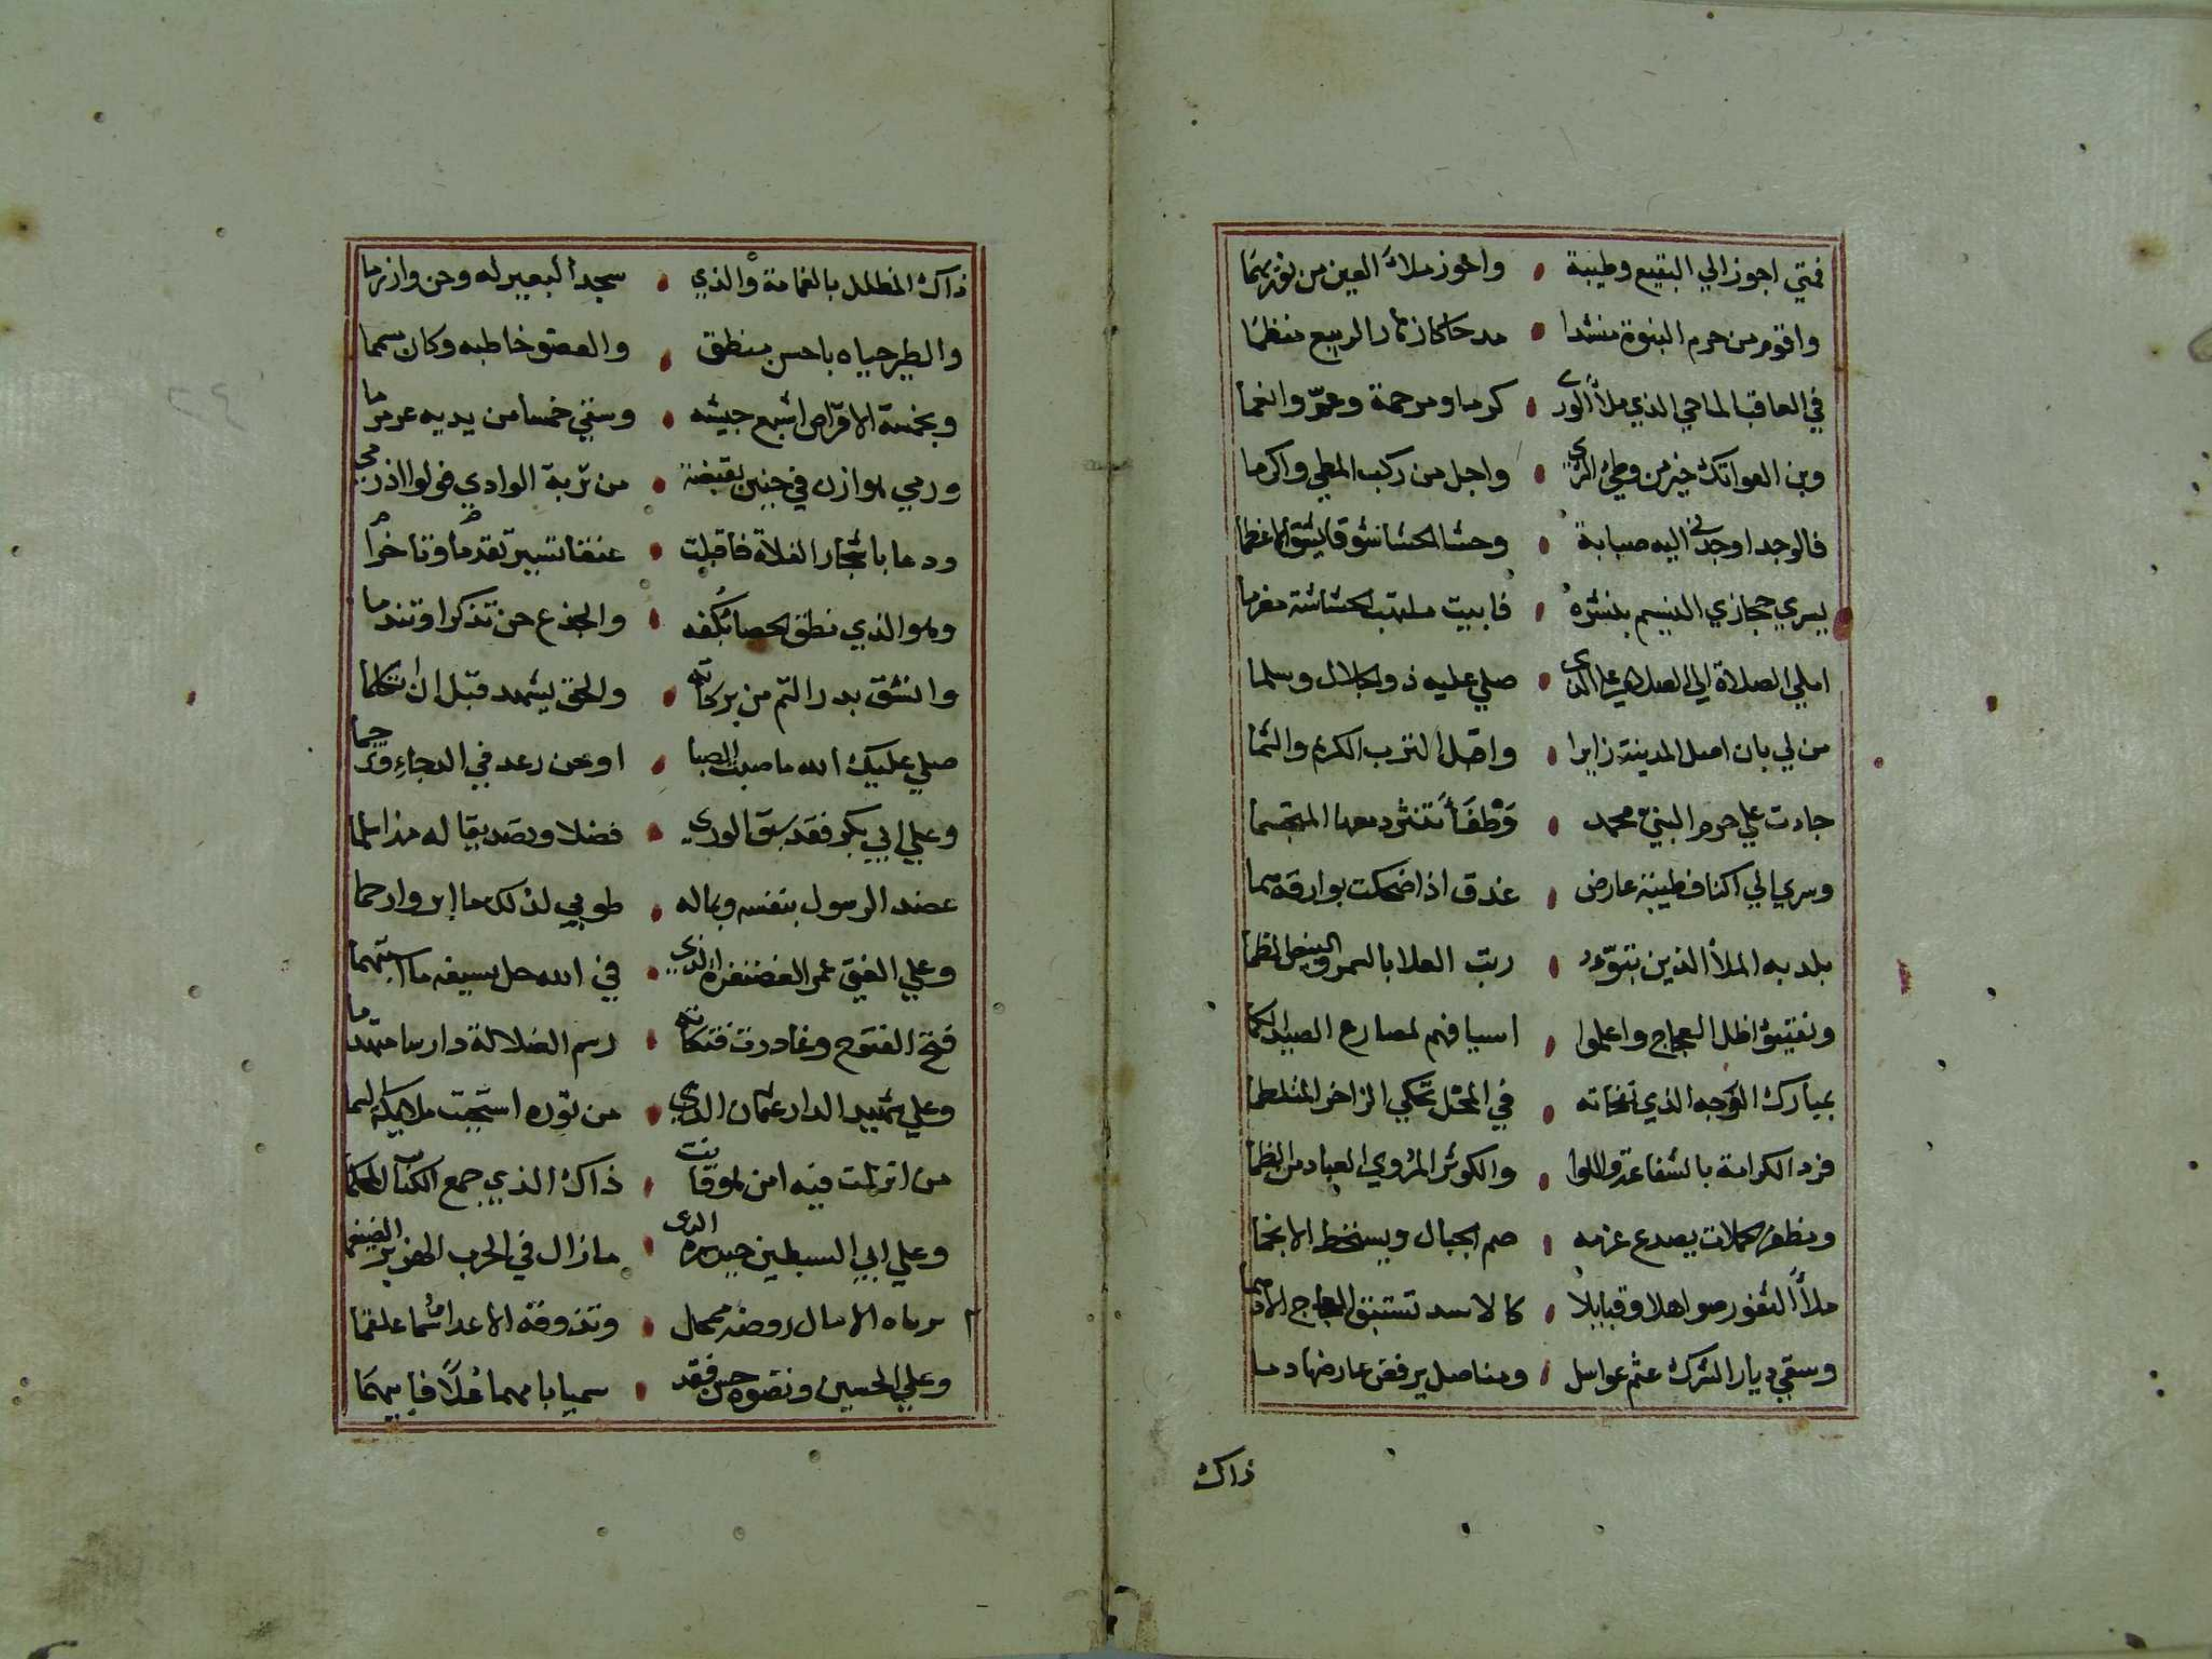 فمتي اجوز الي البقيع وطيبة • واحوز ملاء العين من نور بهما
واقوم من حرم النبوة منشدا • مدحا كازهار الربيع منظما
في العاقب الماحي الذي ملأ الوري • كرما ومرحمة وعمّ وانعما
وبن العواتك خير من وطئ الثري • واجل من ركب المطي واكرما
فالوجد اوجدني اليه صبابة • وحشا الحشا شوقا يشق الاعظما
يسري حجازي النسيم بنشره • فابيت ملتهب الحشاشة مغرما
املي الصلاة الي الصلاة علي الذي • صلي عليه ذو الجلال وسلما
من لي بان اصل المدينة زايرا • واقبل الترب الكريم والثما
جادت علي حرم النبيّ محمد • وَطْفَأً تنثر دمعها المتجسما
وسري الي اكناف طيبة عارض • غدق اذا ضحكت بوارقه هما
بلد به الملأ الذين تبوّءو • رتب العلا بالسمر والبيض الظما
وتفيئوا ظل العجاج واعلموا • اسيافهم لمصارع الصيد الكما
بمبارك الوجه الذي نفحاته • في المحل تحكي الزاخر المتلطما
فرد الكرامة بالشفاعة واللوا • والكوثر المُروي العباد من الظما
ومظفر الحملات يصدع عزمه • صم الجبال ويسخط الانجما
ملأ الثغور صواهلا وقبايلا • كالاسد تستبق العجاج الادهما
وسقي ديار الشرك عثم عواسل • ومناصل يرفض عارضها دما
ذاك
ذاك المظلل بالغمامة والذي • سجد البعير له وحن وازرما
والطير حياه باحسن منطق • والعضو خاطبه وكان مسمما
وبخمسة الاقرّاص اشبع جيشه • وسقي خمسا من يديه عرمرما
ورمي هوازن في حنين بقبضة • من تربة الوادي فولوا اذ رمي
ودعا باشجار الفلاة فاقبلت • عنقا تسير تقدما وتاخرا
وهو الذي نطق الحصا بكفه • والجذع حن تذكرا وتندما
وانشق بدر التم من بركاته • والحق يشهد قبل ان يتكلما
صلي عليك الله ما صبت الصبا • او حن رعد في الدجاء وزمجما
وعلي ابي بكر فقد سبق الوري • فضلا وتصديقا له مذ اسلما
عضد الرسول بنفسه وبماله • طوبي لذلك ما ابر وارحما
وعلي الفتي عمر الغضنفر الذي • في الله حل بسيفه ما استبهما
فتح الفتوح وغادرت فتكاته • رسم الضلالة دارسا متهدما
وعلي شهيد الدار عثمان الذي • من نوره استحيت ملايكة السما
من انزلت فيه امن هو قانت • ذاك الذي جمع الكتاب المحكما
وعلي ابي السبطين حيدرة الذي • ما زال في الحرب الهزبر الضيغما
يرعاه الامال روضه ممحل • وتذوقه الاعداء سما علقما
وعلي الحسين وصنوه حسن فقد • سميا بامهما علاً فابيهما